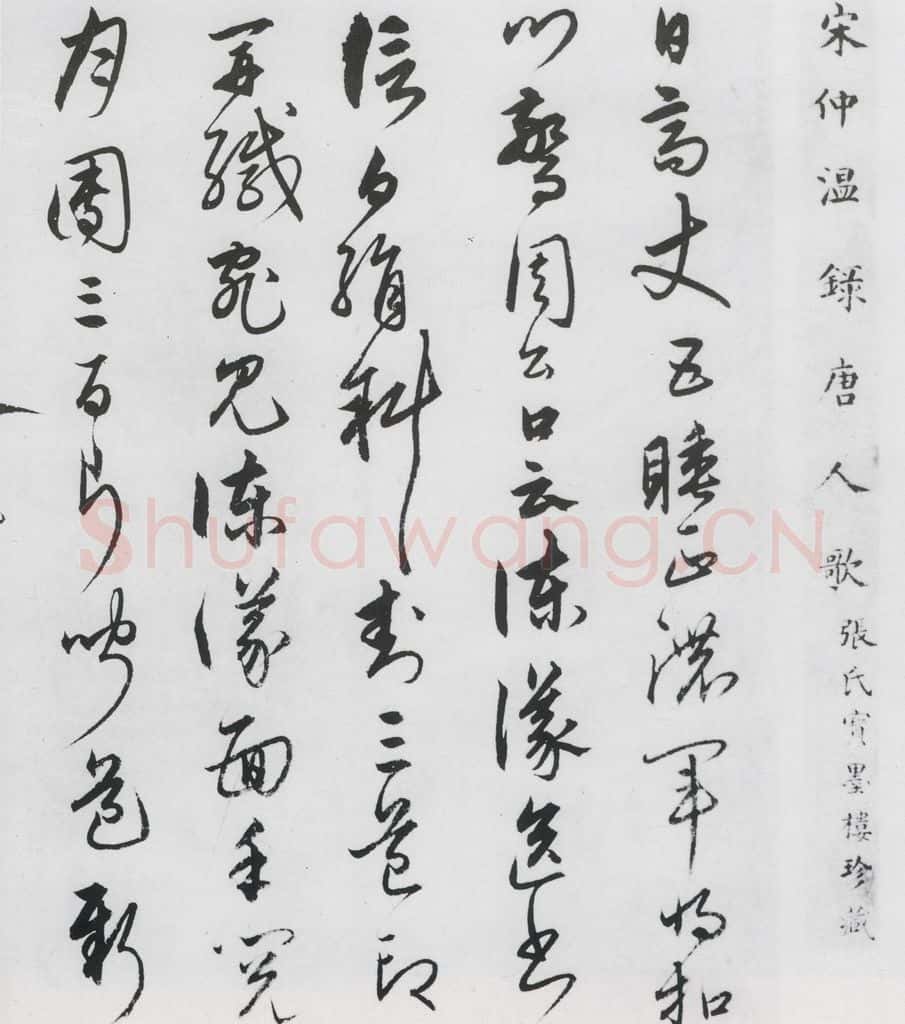 宋仲温錄唐人歌 張氏寶墨樓珍藏
日高丈五睡正濃軍將扣
門驚周公口云諫議送書
信白絹斜封三道印
開緘宛見諫議面手閱
月團三百片聞道新
Shufawang.CN